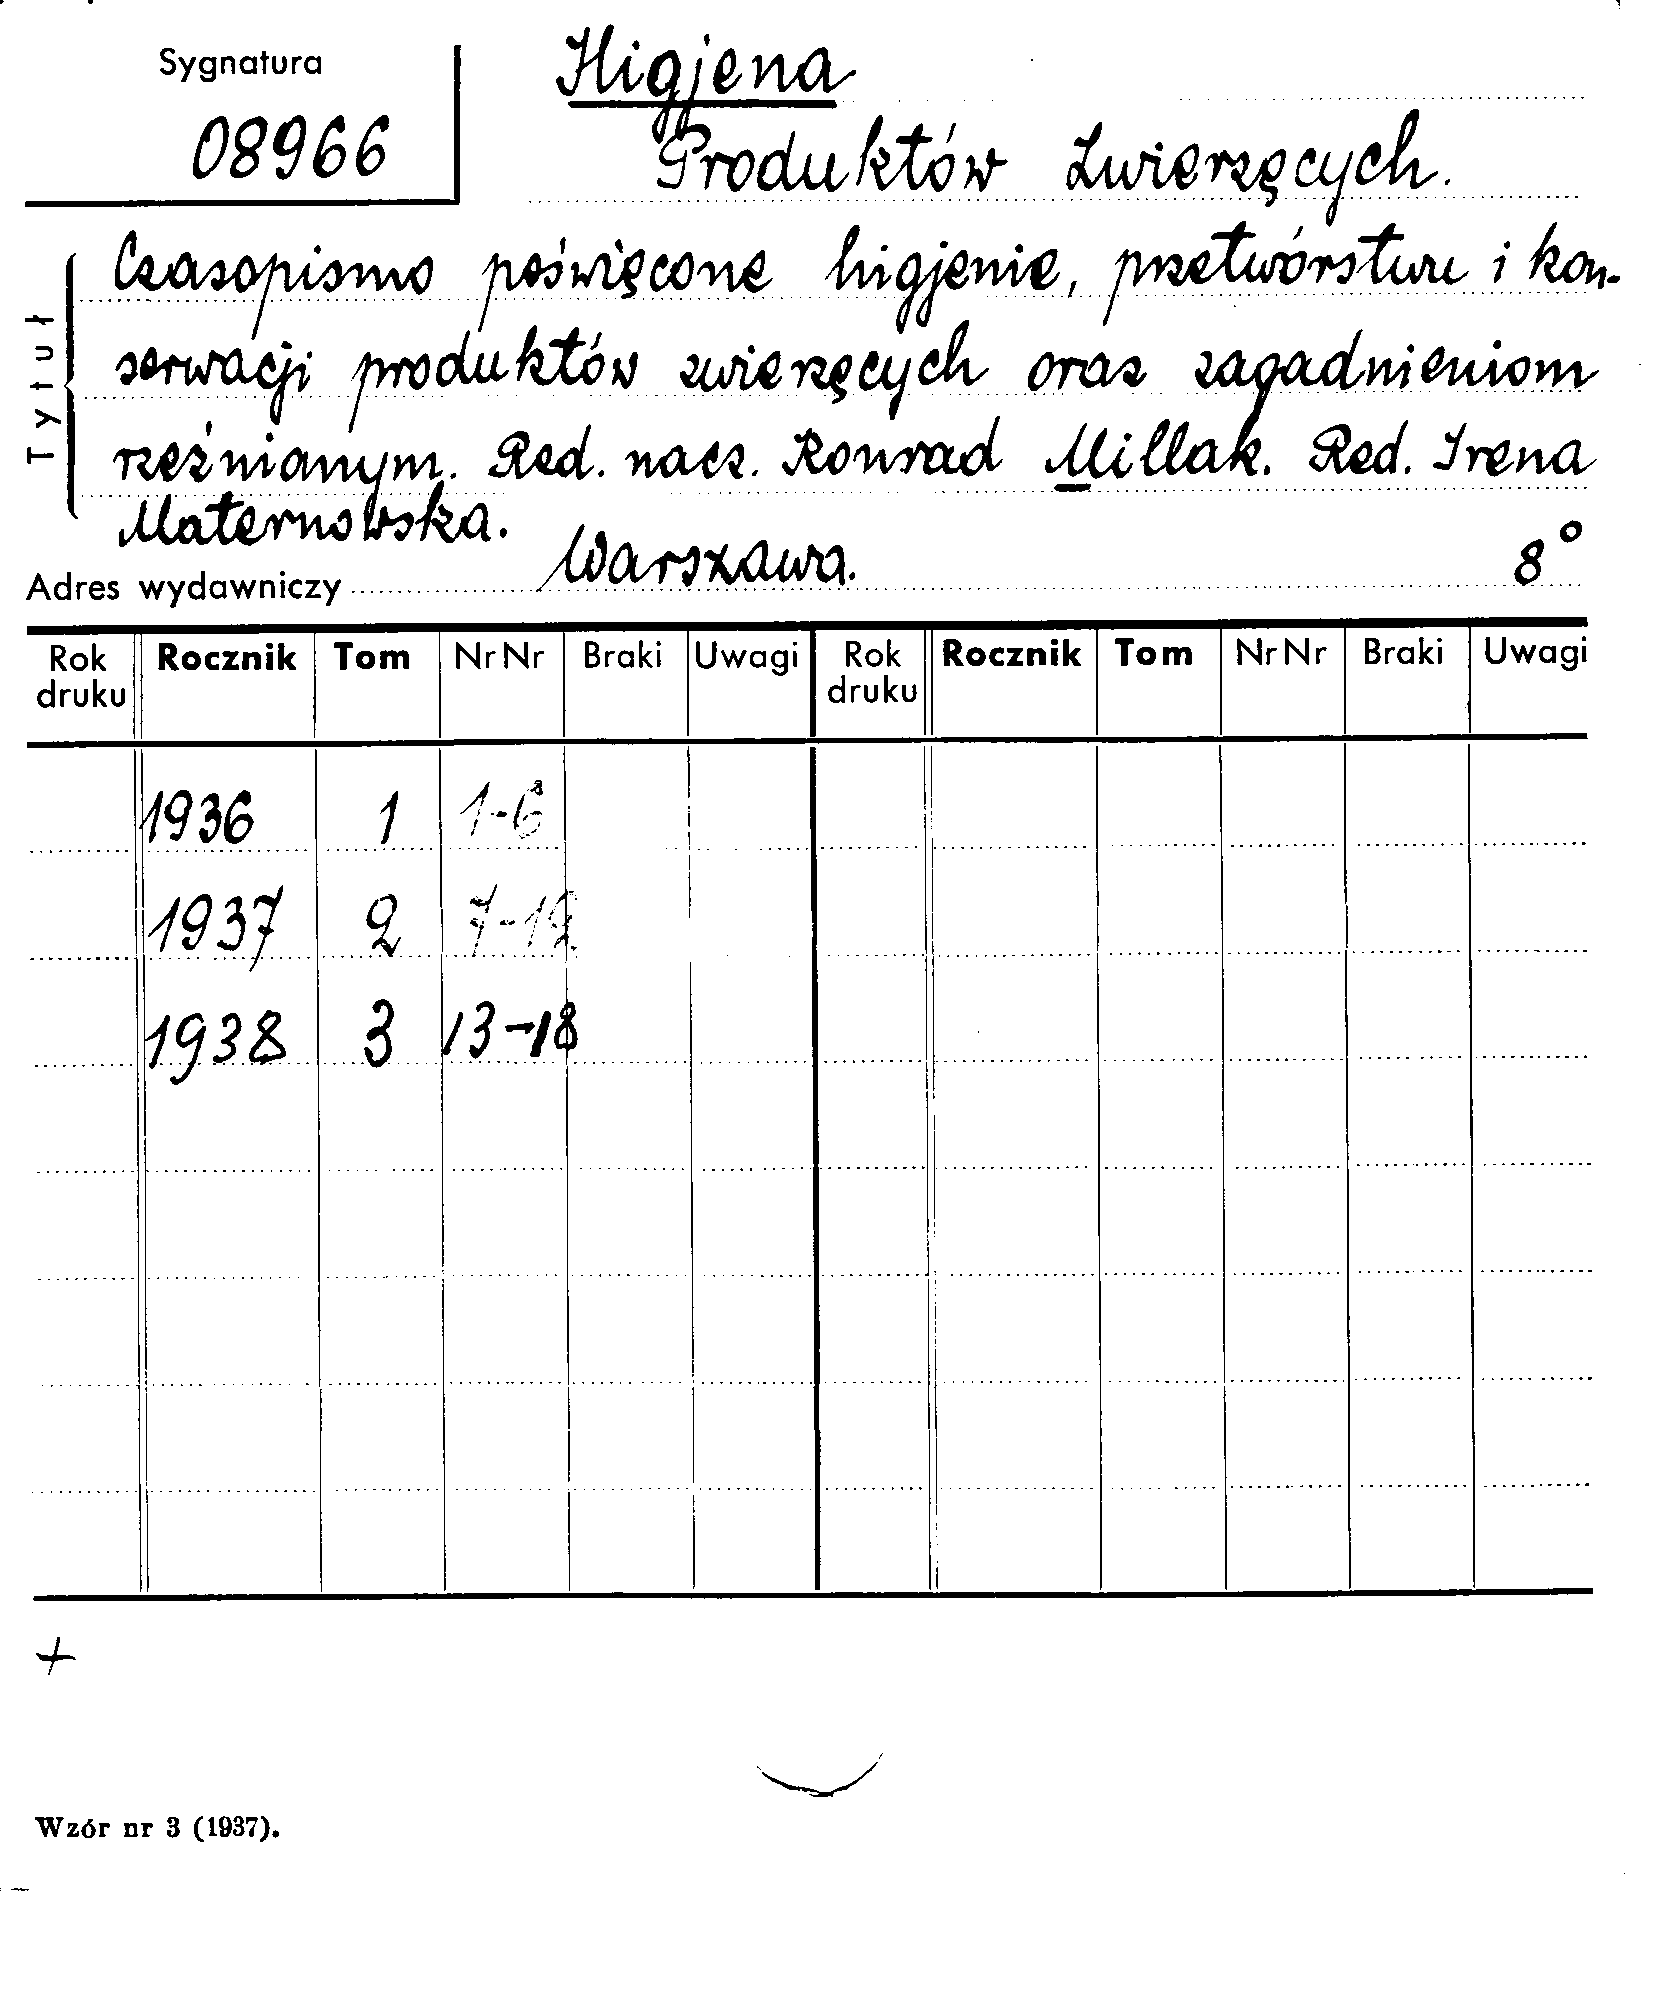 Sygnatura
08966
Higjena
Produktów Zwierzęcych.
Tytuł
Czasopismo poświęcone higjenie, przetwórstwu i kon-
serwacji produktów zwierzęcych oraz zagadnieniom
rzeźnianym. Red. nacz. Konrad Millak. Red. Irena
Maternowska.
Adres wydawniczy Warszawa. 8°
Rok druku Rocznik Tom Nr Nr Braki Uwagi Rok druku Rocznik Tom Nr Nr Braki Uwagi
1936 1 1-6
1937 2 7-12
1938 3 13-18
+
Wzór nr 3 (1937).